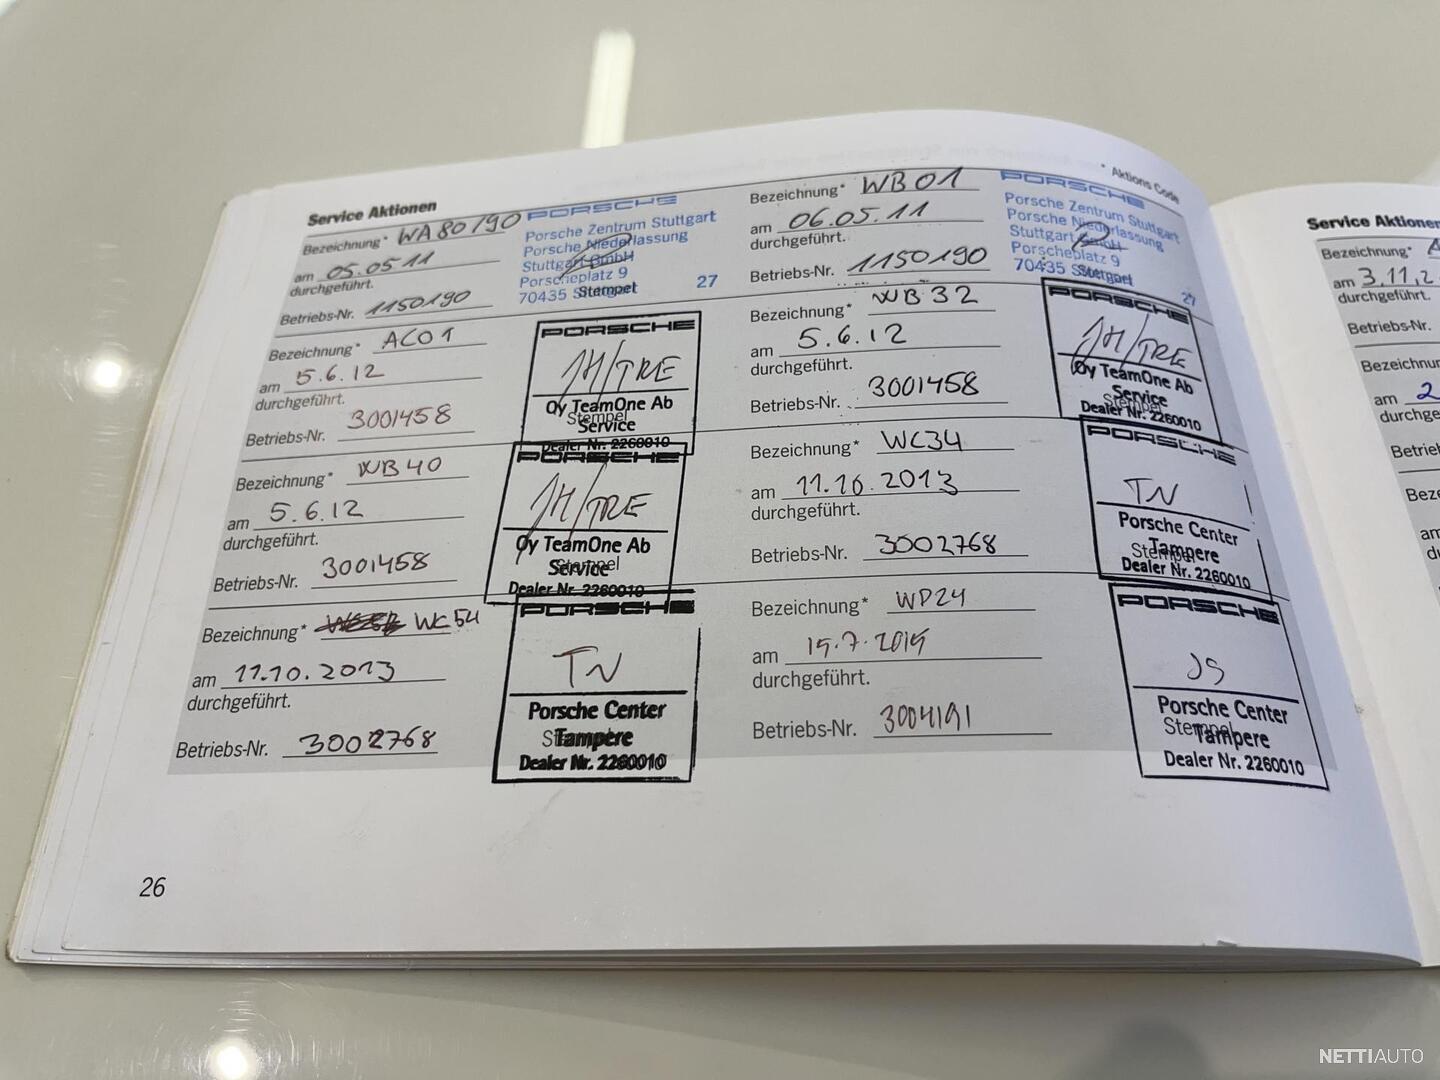 * Aktions Code
Service Aktionen
Bezeichnung* WA80/90
am 05.05.11
durchgeführt.
Betriebs-Nr. 1150190
PORSCHE
Porsche Zentrum Stuttgart
Porsche Niederlassung
Stuttgart GmbH
Porscheplatz 9
70435 Stuttgart 27
Stempel
Bezeichnung* WB01
am 06.05.11
durchgeführt.
Betriebs-Nr. 1150190
PORSCHE
Porsche Zentrum Stuttgart
Porsche Niederlassung
Stuttgart GmbH
Porscheplatz 9
70435 Stuttgart 27
Stempel
Bezeichnung* AC01
am 5.6.12
durchgeführt.
Betriebs-Nr. 3001458
PORSCHE
JH/TRE
Oy TeamOne Ab
Stempel
Service
Dealer Nr. 2260010
Bezeichnung* WB32
am 5.6.12
durchgeführt.
Betriebs-Nr. 3001458
PORSCHE
JH/TRE
Oy TeamOne Ab
Service
Stempel
Dealer Nr. 2260010
Bezeichnung* WB40
am 5.6.12
durchgeführt.
Betriebs-Nr. 3001458
PORSCHE
JH/TRE
Oy TeamOne Ab
Service
Stempel
Dealer Nr. 2260010
Bezeichnung* WC34
am 11.10.2013
durchgeführt.
Betriebs-Nr. 3002768
PORSCHE
TN
Porsche Center
Tampere
Stempel
Dealer Nr. 2260010
Bezeichnung* WC54
am 11.10.2013
durchgeführt.
Betriebs-Nr. 3002768
PORSCHE
TN
Porsche Center
Stempel
Tampere
Dealer Nr. 2260010
Bezeichnung* WD24
am 15.7.2015
durchgeführt.
Betriebs-Nr. 3004191
PORSCHE
JS
Porsche Center
Stempel
Tampere
Dealer Nr. 2260010
26
Service Aktionen
Bezeichnung*
am 3.11.2
durchgeführt.
Betriebs-Nr.
am 2
NETTIAUTO